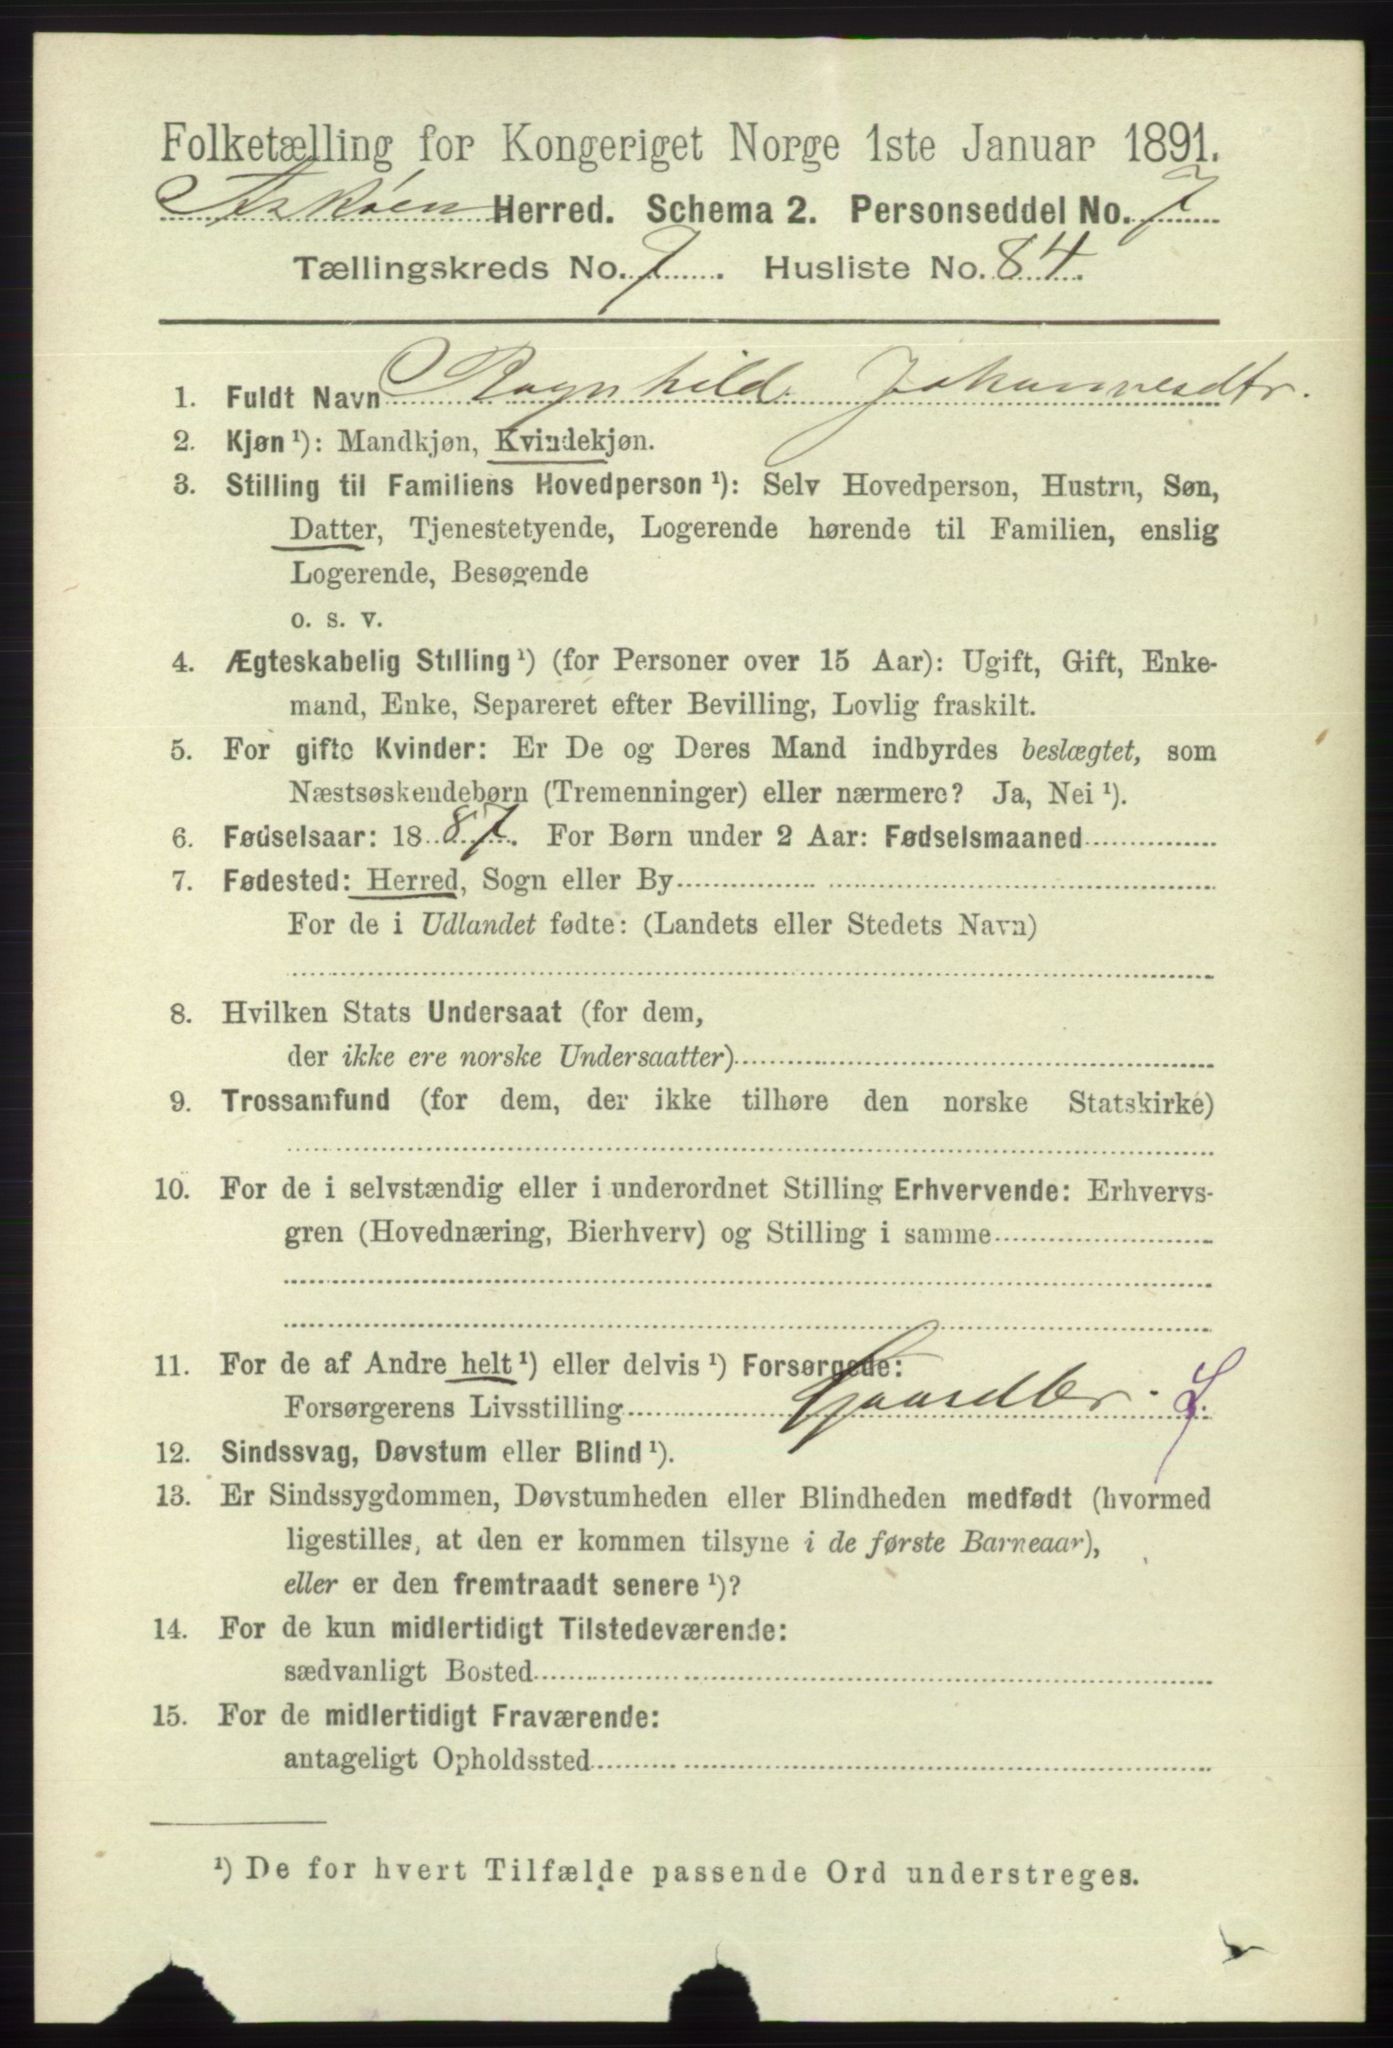 Folketælling for Kongeriget Norge 1ste Januar 1891.
Askøen Herred. Schema 2. Personseddel No. 7
Tællingskreds No. 7. Husliste No. 84.
1. Fuldt Navn Ragnhild Johannesdtr.
2. Kjøn ¹): Mandkjøn, Kvindekjøn.
3. Stilling til Familiens Hovedperson ¹): Selv Hovedperson, Hustru, Søn,
Datter, Tjenestetyende, Logerende hørende til Familien, enslig
Logerende, Besøgende
o. s. v.
4. Ægteskabelig Stilling ¹) (for Personer over 15 Aar): Ugift, Gift, Enke-
mand, Enke, Separeret efter Bevilling, Lovlig fraskilt.
5. For gifte Kvinder: Er De og Deres Mand indbyrdes beslægtet, som
Næstsøskendebørn (Tremenninger) eller nærmere? Ja, Nei ¹).
6. Fødselsaar: 1887. For Børn under 2 Aar: Fødselsmaaned
7. Fødested: Herred, Sogn eller By
For de i Udlandet fødte: (Landets eller Stedets Navn)
8. Hvilken Stats Undersaat (for dem,
der ikke ere norske Undersaatter)
9. Trossamfund (for dem, der ikke tilhøre den norske Statskirke)
10. For de i selvstændig eller i underordnet Stilling Erhvervende: Erhvervs-
gren (Hovednæring, Bierhverv) og Stilling i samme
11. For de af Andre helt ¹) eller delvis ¹) Forsørgede:
Forsørgerens Livsstilling Gaardbr. S.
12. Sindssvag, Døvstum eller Blind ¹).
13. Er Sindssygdommen, Døvstumheden eller Blindheden medfødt (hvormed
ligestilles, at den er kommen tilsyne i de første Barneaar),
eller er den fremtraadt senere ¹)?
14. For de kun midlertidigt Tilstedeværende:
sædvanligt Bosted
15. For de midlertidigt Fraværende:
antageligt Opholdssted
¹) De for hvert Tilfælde passende Ord understreges.